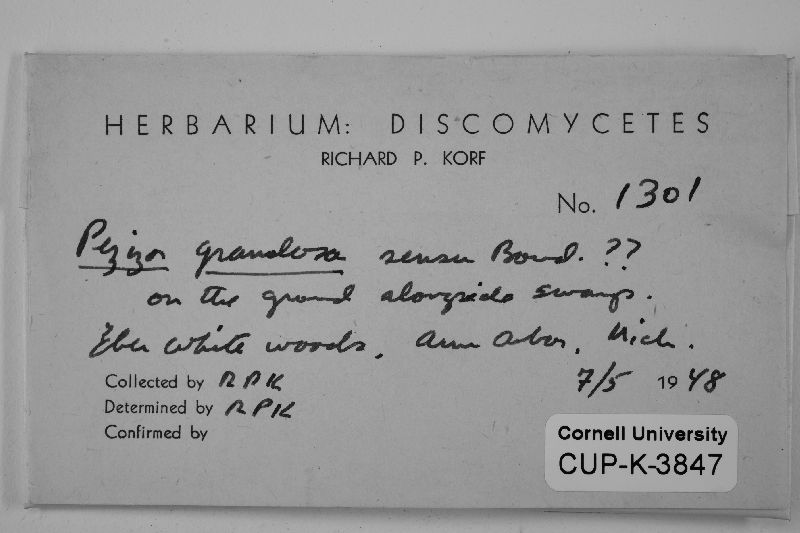 HERBARIUM: DISCOMYCETES
RICHARD P. KORF
No. 1301
Peziza granulosa sensu Boud. ??
on the ground alongside swamp.
Eber White woods, Ann Arbor, Mich.
Collected by RPK 7/5 1948
Determined by RPK
Confirmed by
Cornell University
CUP-K-3847